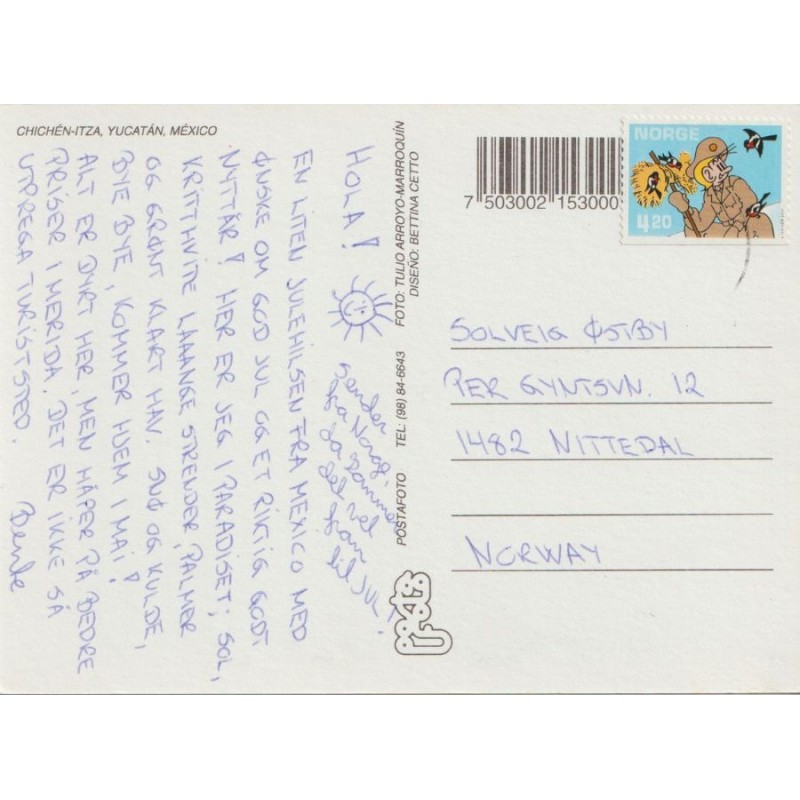 CHICHÉN-ITZA, YUCATÁN, MÉXICO
HOLA!
EN LITEN JULEHILSEN FRA MEXICO MED
ØNSKE OM GOD JUL OG ET RIKTIG GODT
NYTTÅR! HER ER JEG I PARADISET; SOL,
KRITTHVITE LAAANGE STRENDER, PALMER
OG GRØNT KLART HAV. SNØ OG KULDE,
BYE BYE, KOMMER HJEM I MAI!
ALT ER DYRT HER, MEN HÅPER PÅ BEDRE
PRISER I MERIDA. DET ER IKKE SÅ
UPREGA TURISTSTED.
Bente
Sender
fra Norge,
da kommer
det vel
fram
til JUL!
FOTO: TULIO ARROYO-MARROQUÍN
DISEÑO: BETTINA CETTO
TEL: (98) 84-6643
POSTAFOTO
7 503002 153000
NORGE
4.20
SOLVEIG ØSTBY
PER GYNTSVN. 12
1482 NITTEDAL
NORWAY